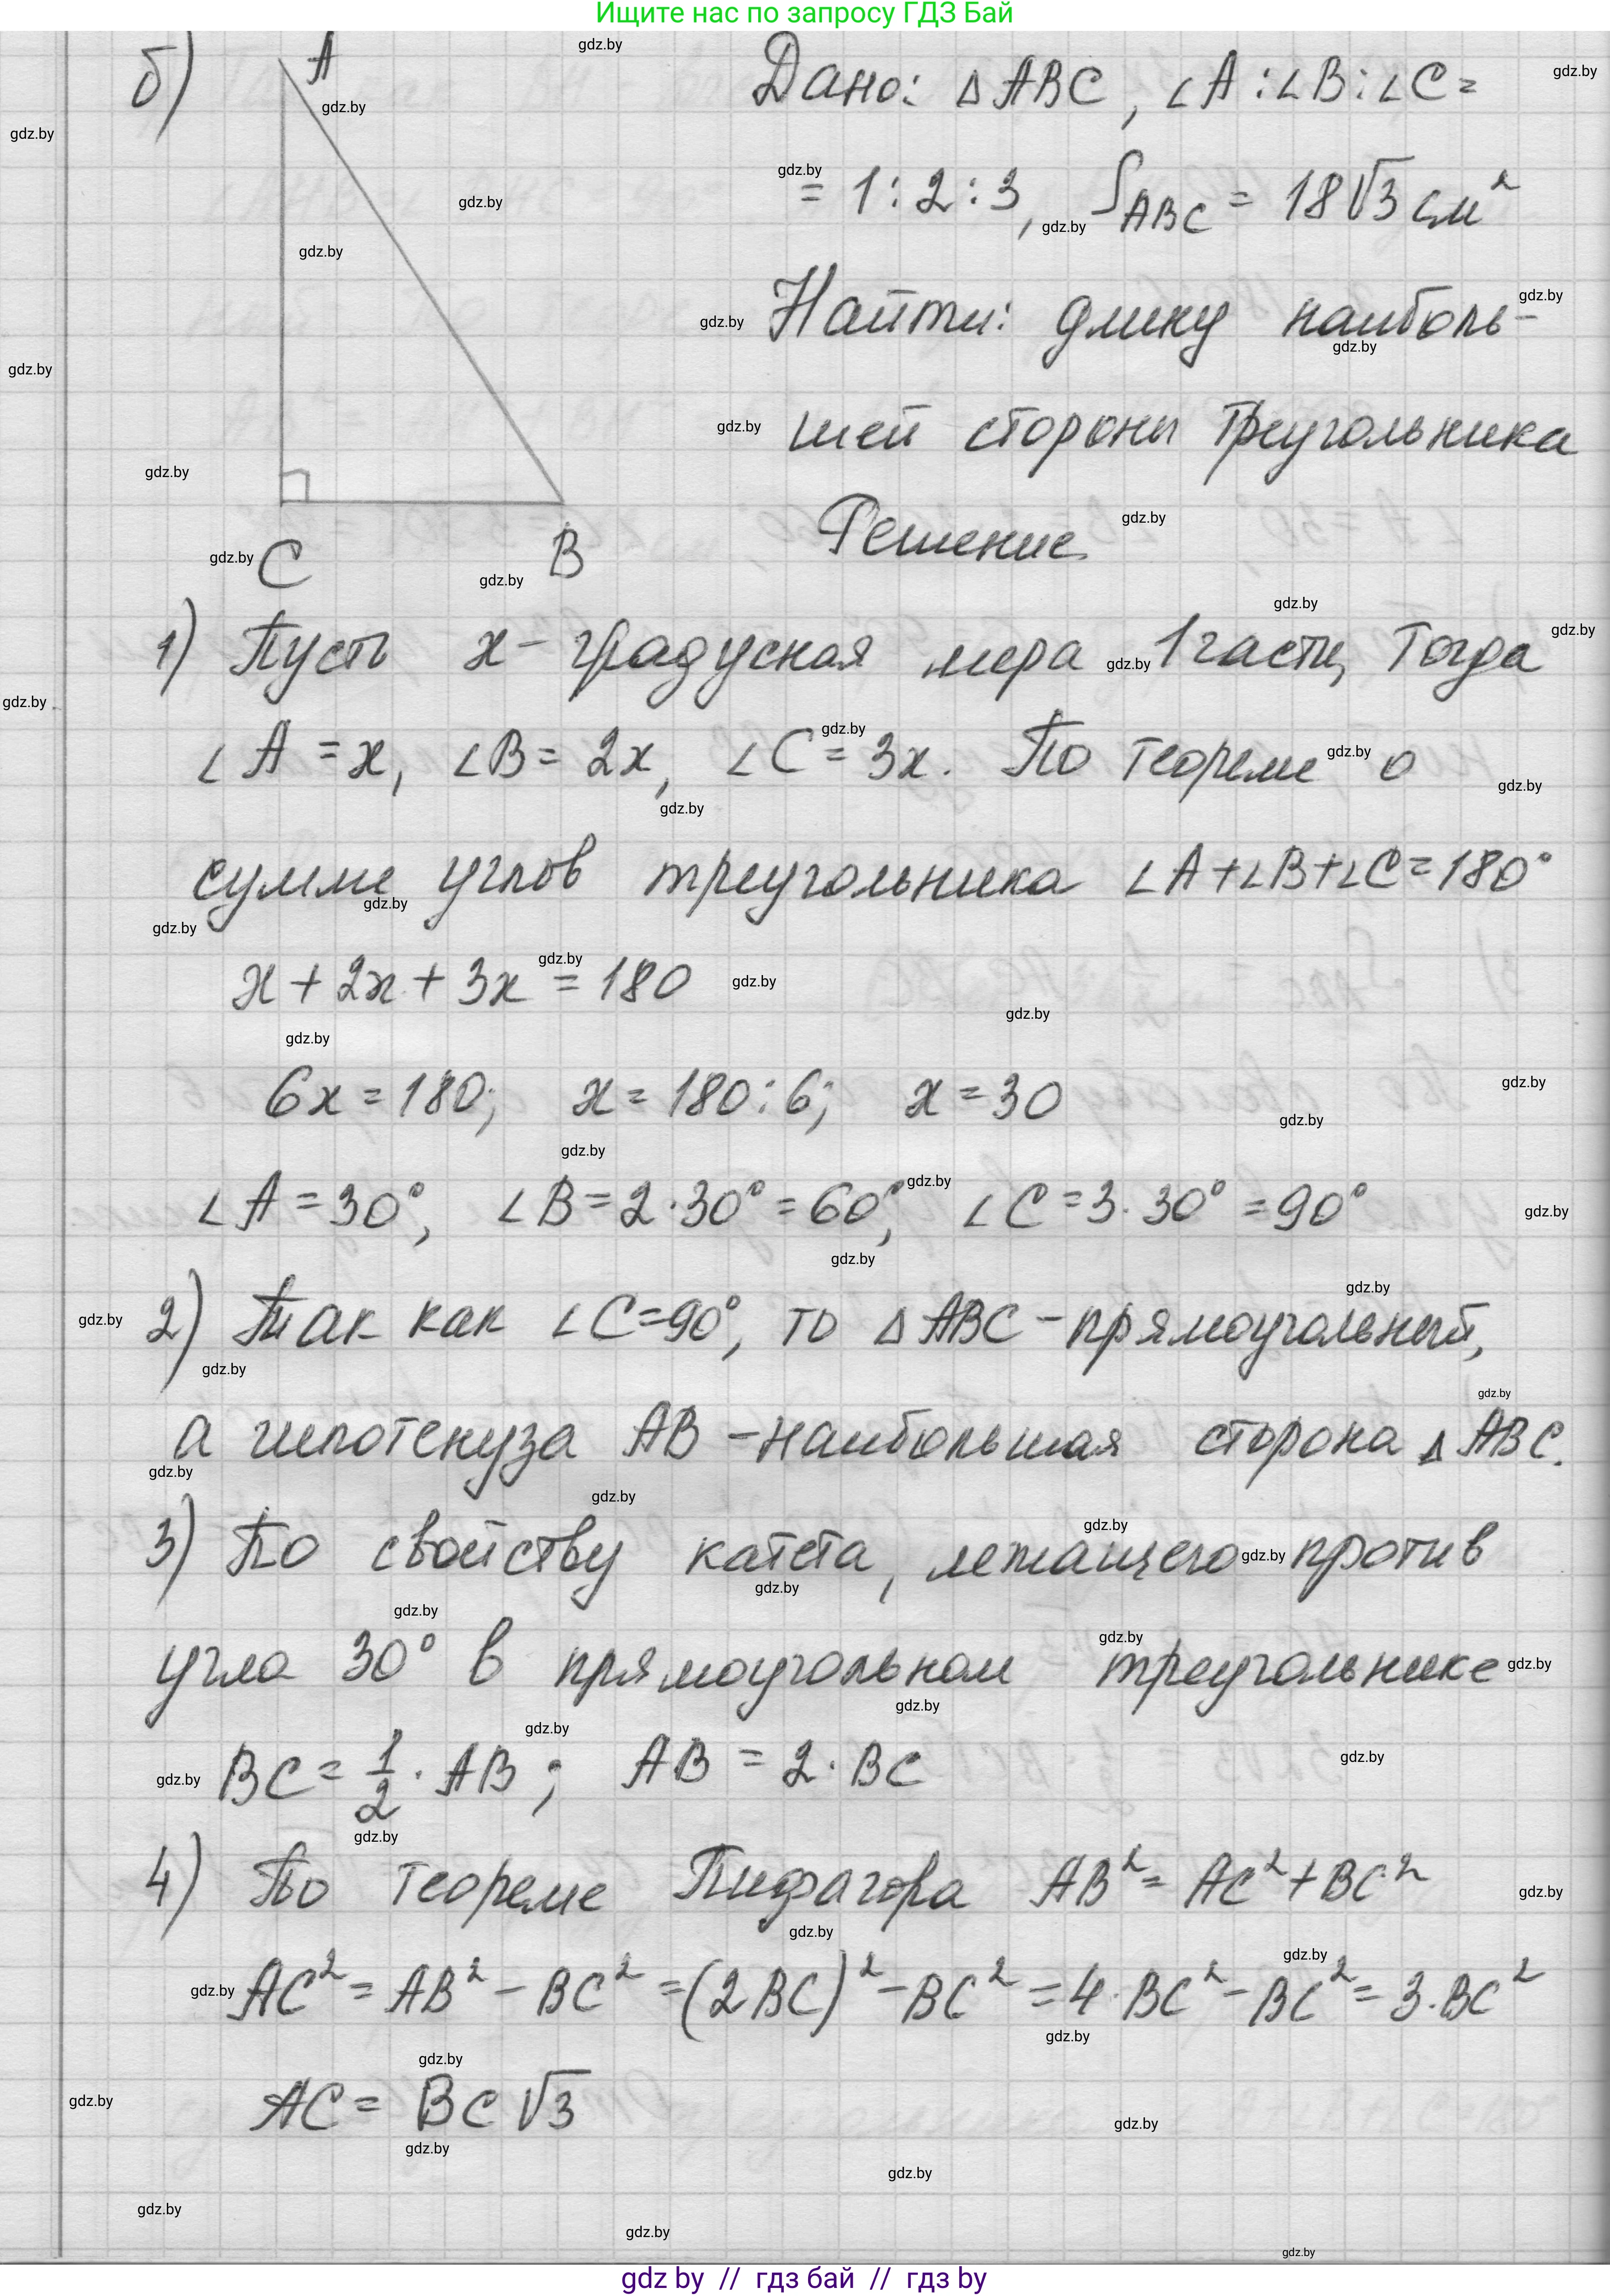 Ищите нас по запросу ГДЗ Бай
б)
A
C
B
Дано: △ABC, ∠A:∠B:∠C=
= 1:2:3, S_ABC = 18√3 см²
Найти: длину наиболь-
шей стороны треугольника
Решение
1) Пусть x - градусная мера 1 части, Тогда
∠A = x, ∠B = 2x, ∠C = 3x. По теореме о
сумме углов треугольника ∠A+∠B+∠C=180°
x + 2x + 3x = 180
6x = 180; x = 180:6; x = 30
∠A = 30°, ∠B = 2·30° = 60°, ∠C = 3·30° = 90°
2) Так как ∠C=90°, то △ABC - прямоугольный,
а гипотенуза AB - наибольшая сторона △ABC.
3) По свойству катета, лежащего против
угла 30° в прямоугольном треугольнике
BC = 1/2 · AB; AB = 2·BC
4) По теореме Пифагора AB² = AC² + BC²
AC² = AB² - BC² = (2BC)² - BC² = 4·BC² - BC² = 3·BC²
AC = BC√3
gdz by // гдз бай // гдз by